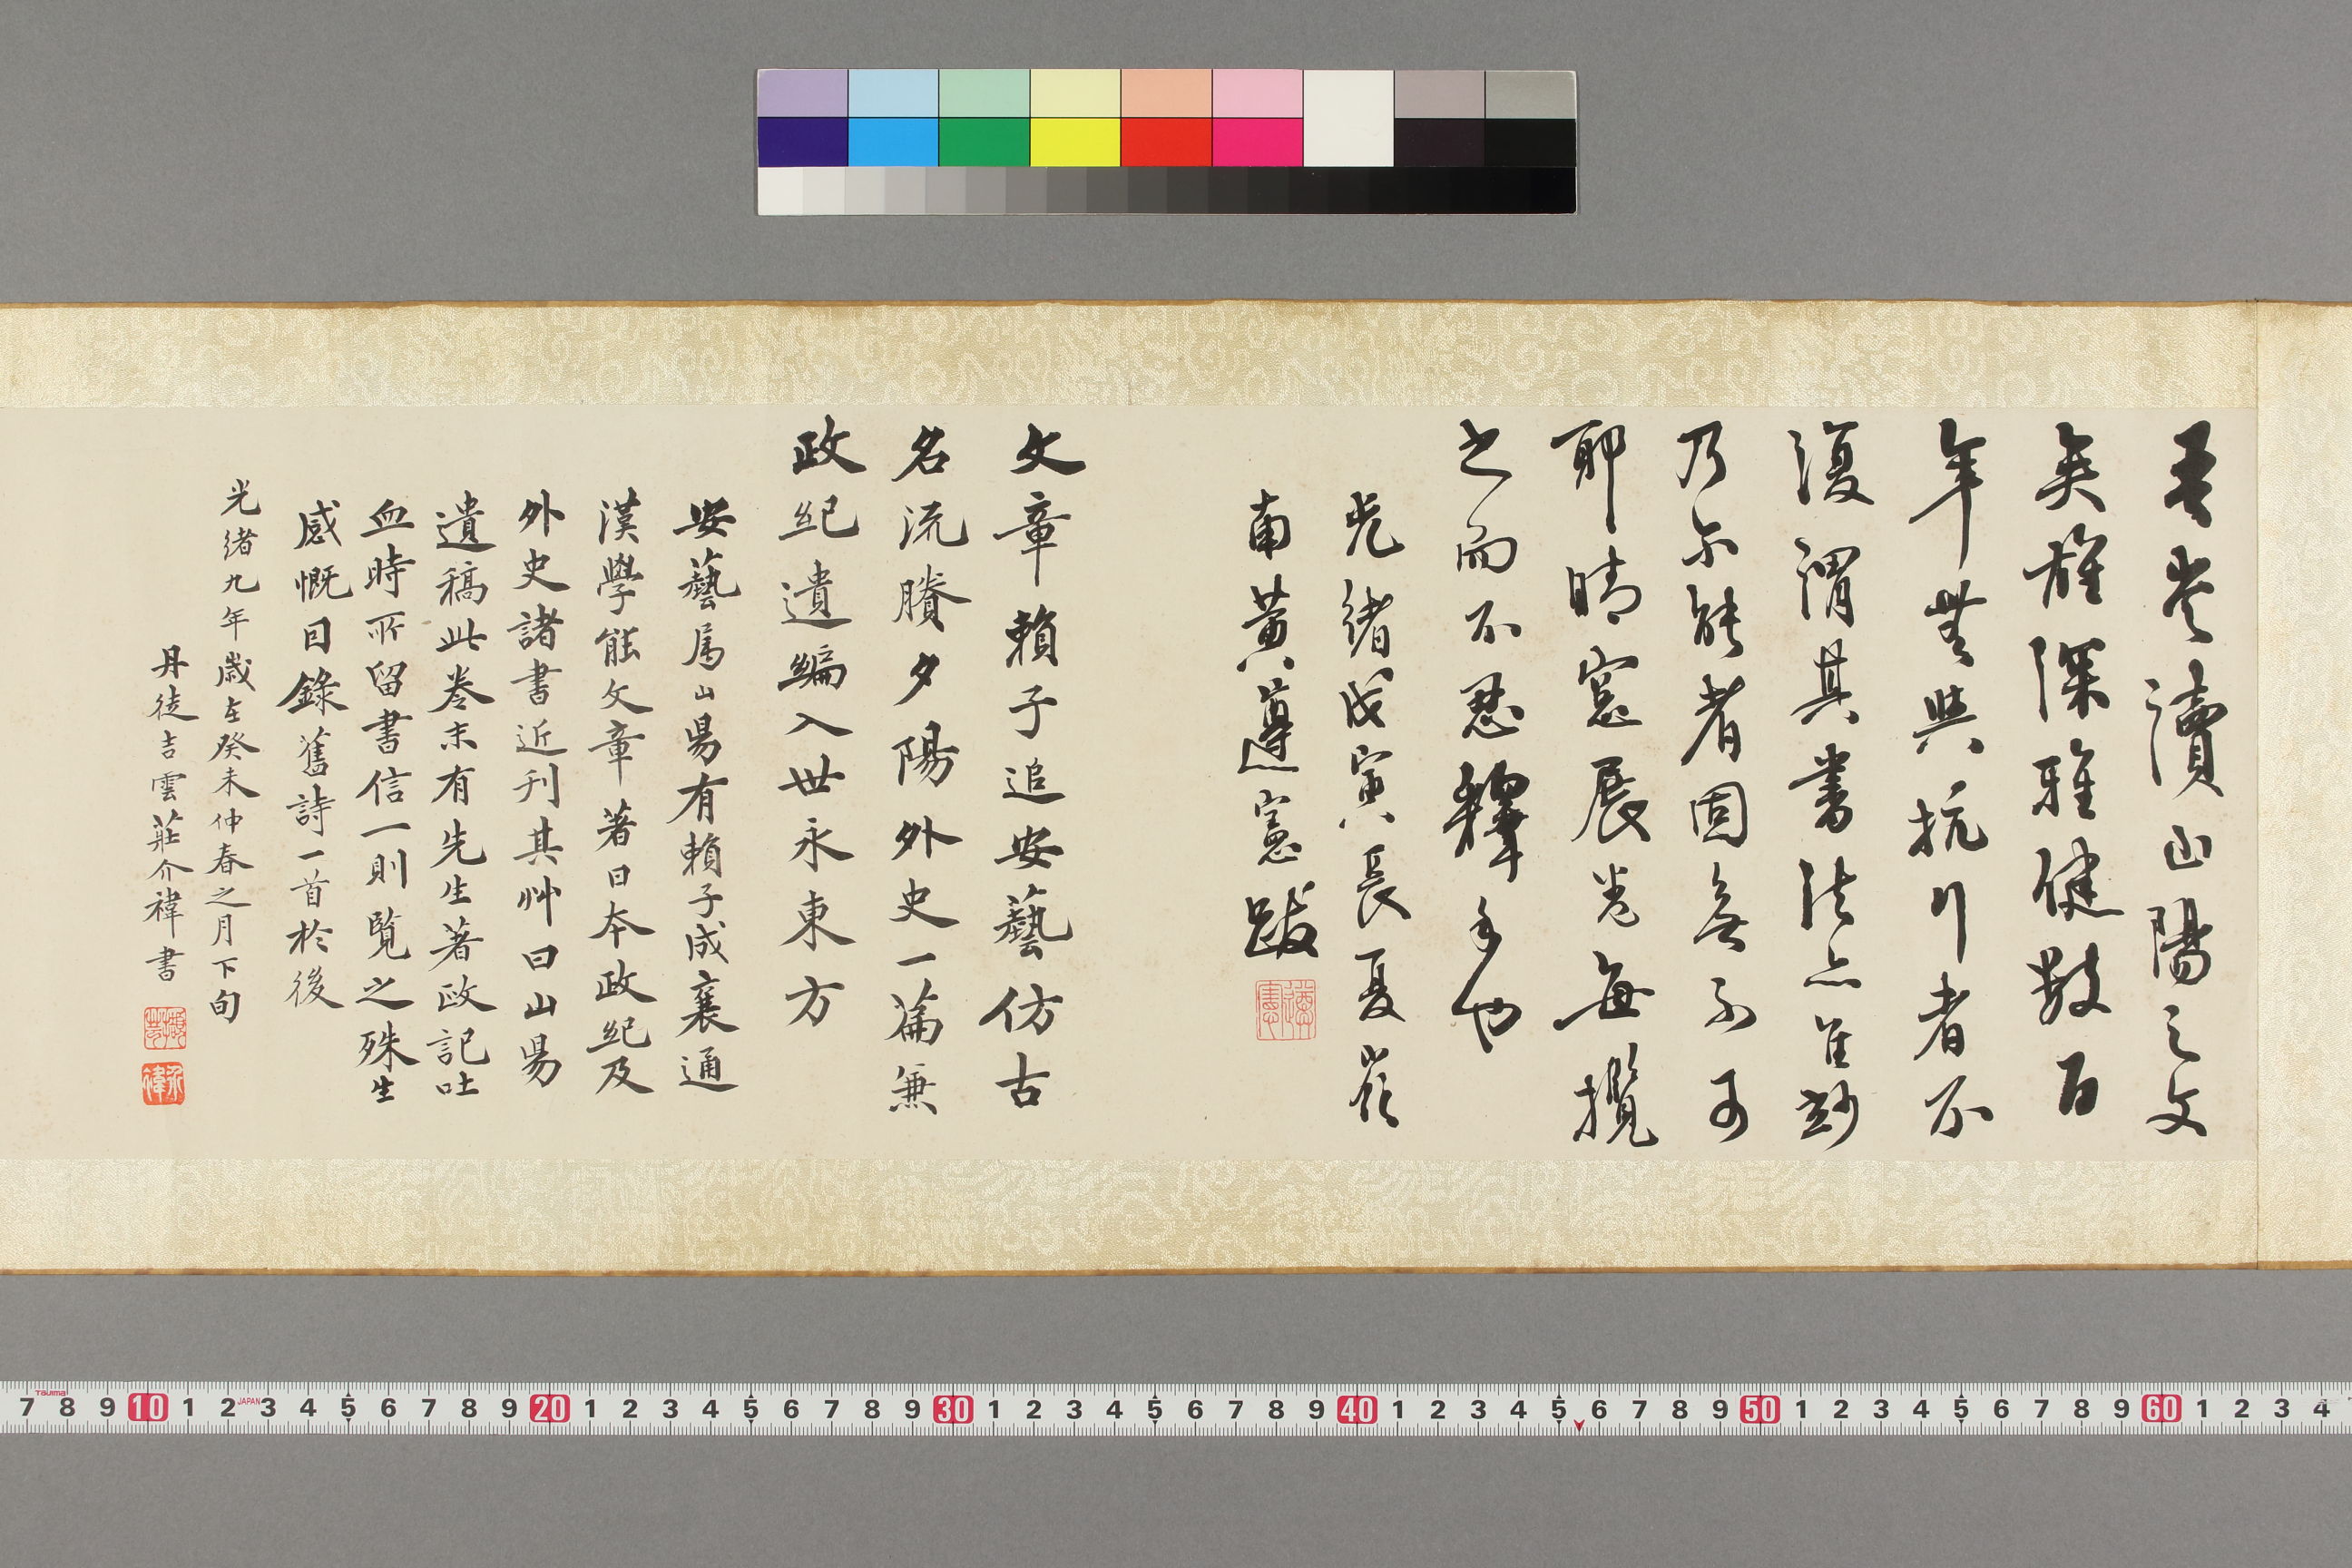 吾嘗讀山陽之文
矣雄深雅健數百
年無與抗行者不
復謂其書法亦佳妙
乃爾能者固無不可
耶晴窗展卷每攬
之而不忍釋手也
光緒戊寅長夏嶺
南黃遵憲跋
遵憲
文章賴子追安藝仿古
名流賸夕陽外史一篇兼
政紀遺編入世永東方
安藝属山昜有賴子成襄通
漢學能文章著日本政紀及
外史諸書近刋其艸曰山昜
遺稿此卷末有先生著政記吐
血時所留書信一則覧之殊生
感慨因錄舊詩一首於後
光緒九年歲在癸未仲春之月下旬
丹徒吉雲莊介禕書
7 8 9 10 1 2 3 4 5 6 7 8 9 20 1 2 3 4 5 6 7 8 9 30 1 2 3 4 5 6 7 8 9 40 1 2 3 4 5 6 7 8 9 50 1 2 3 4 5 6 7 8 9 60 1 2 3 4
Tajima
JAPAN